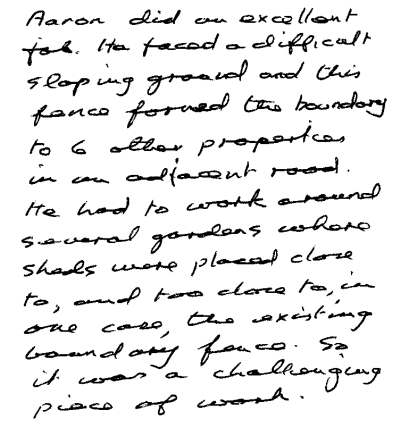 Aaron did an excellent
job. He faced a difficult
sloping ground and this
fence formed the boundary
to 6 other properties
in an adjacent road.
He had to work around
several gardens where
sheds were placed close
to, and too close to, in
one case, the existing
boundary fence. So
it was a challenging
piece of work.